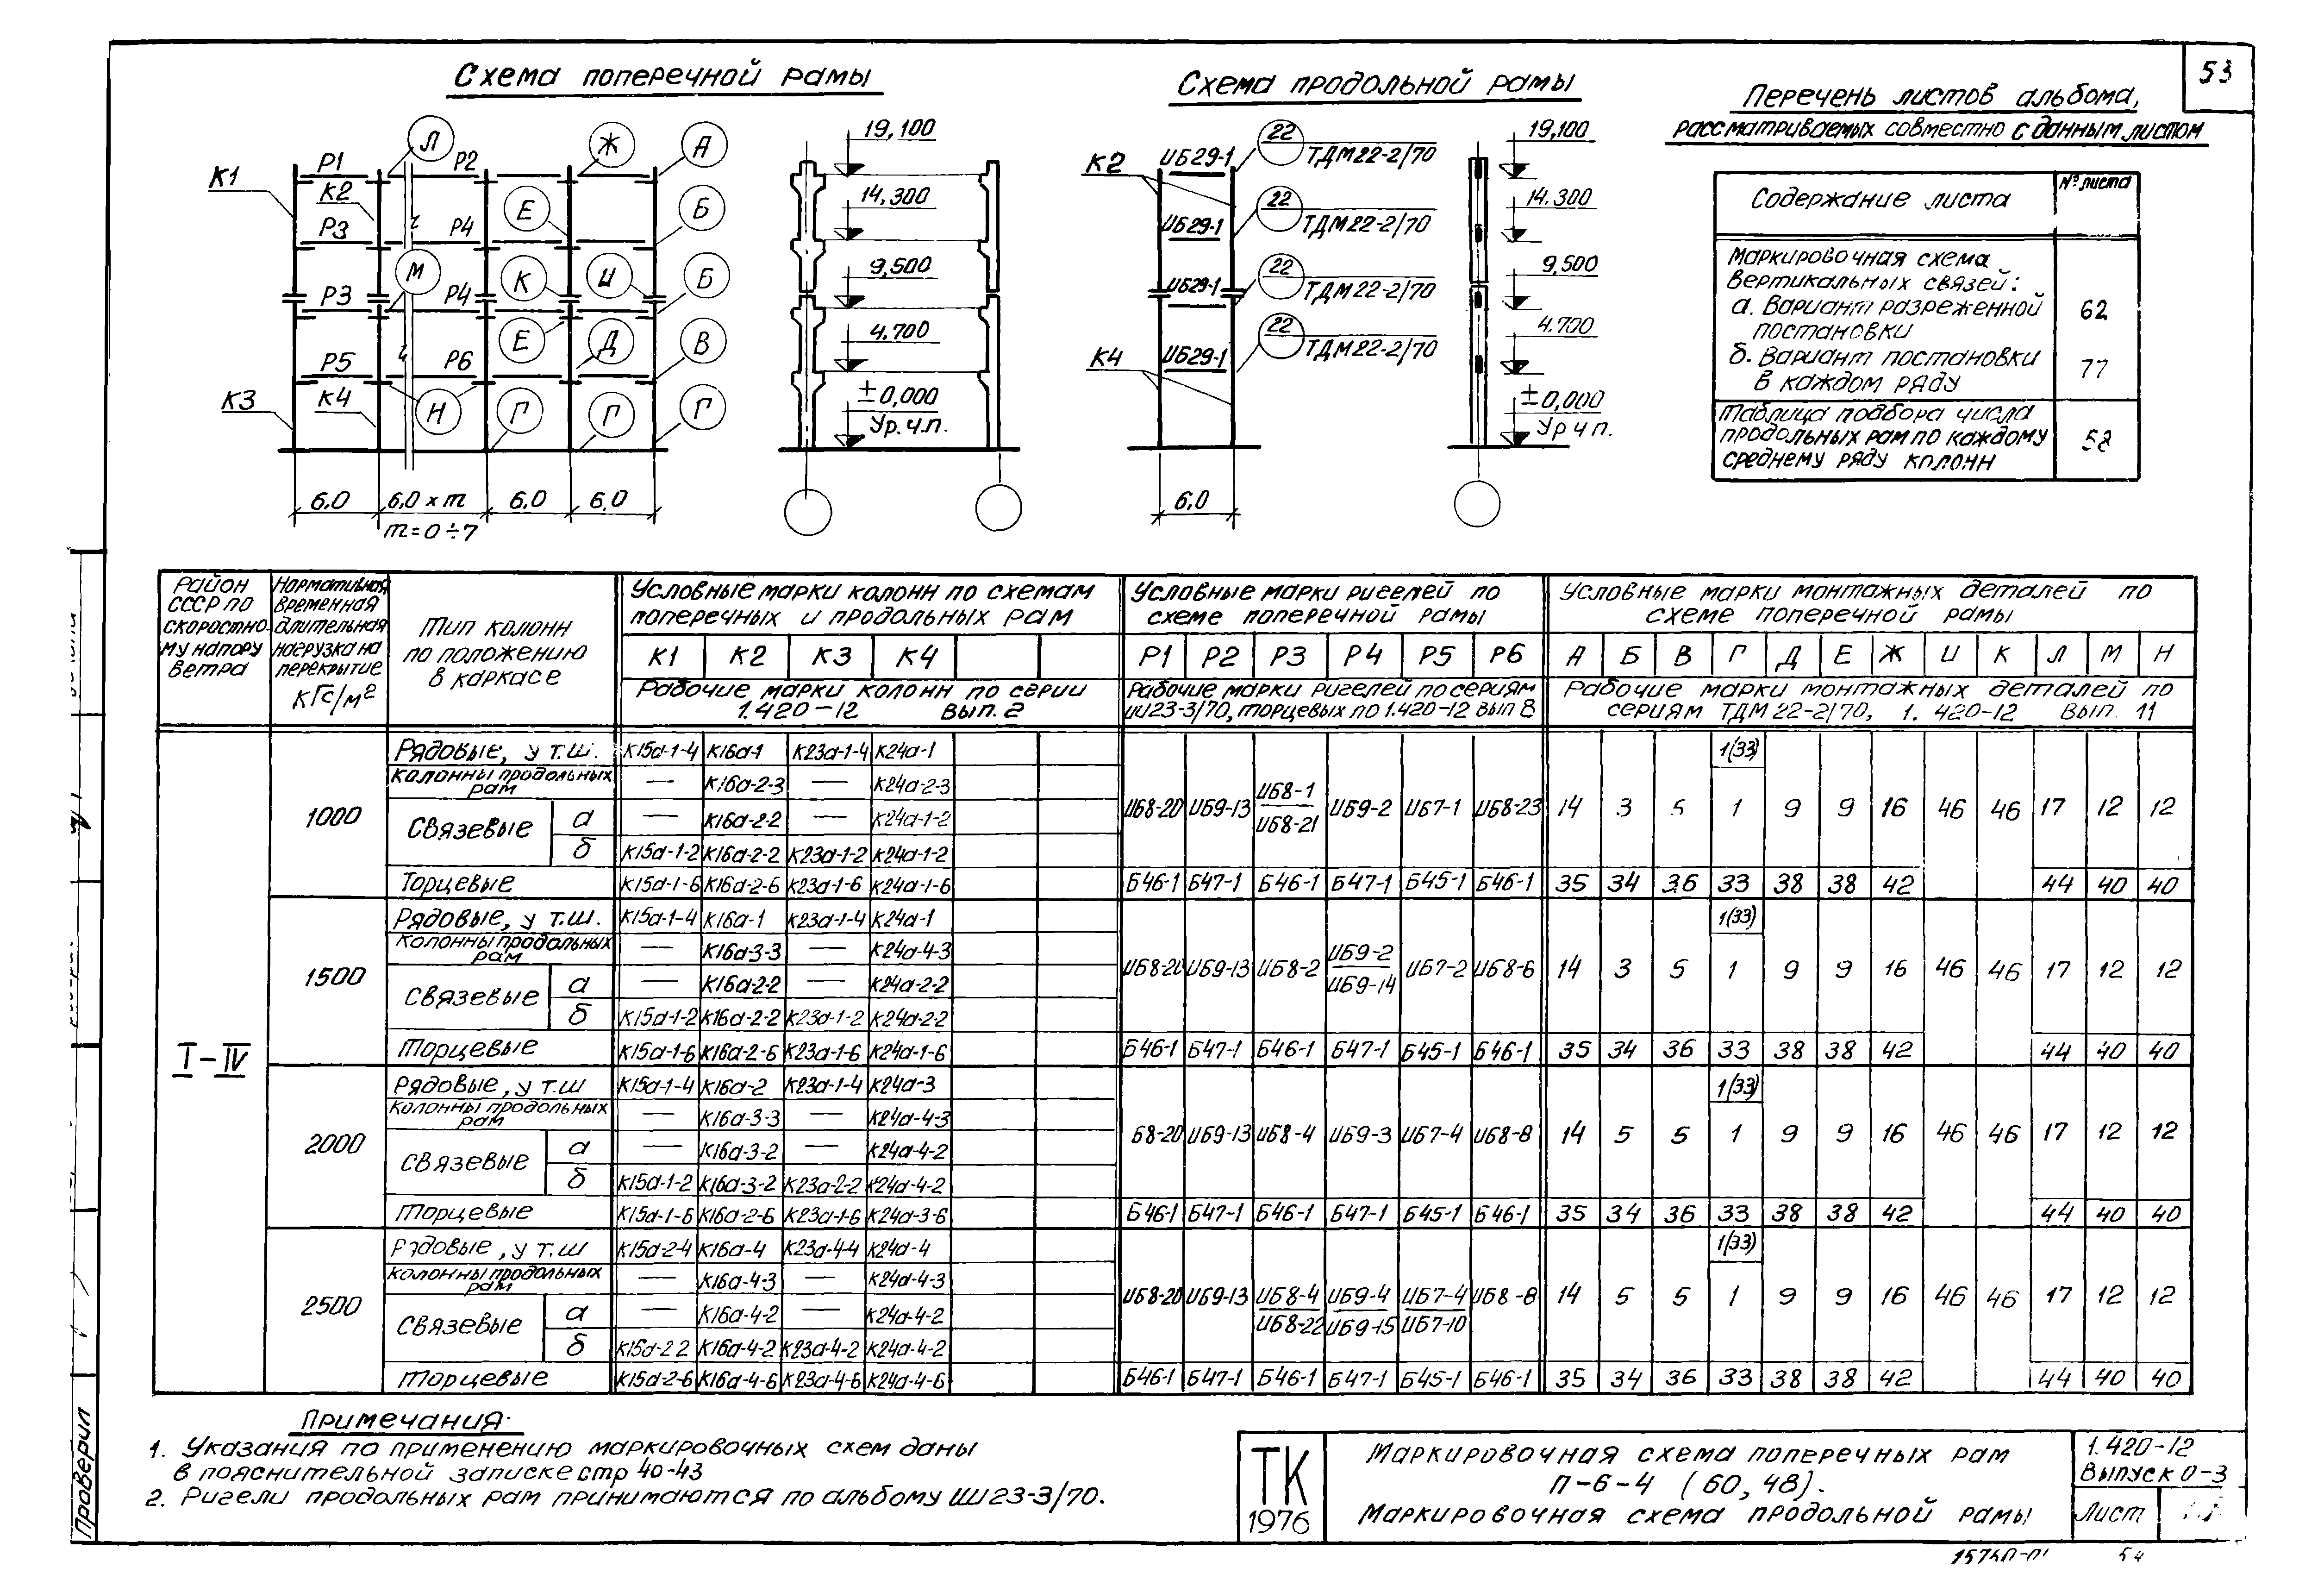 53
Схема поперечной рамы
Схема продольной рамы
Перечень листов альбома,
рассматриваемых совместно с данным листом
К1
К2
К3
К4
Р1
Р2
Р3
Р4
Р3
Р4
Р5
Р6
Л
Ж
А
Е
Б
М
К
И
Б
Е
Д
В
Н
Г
Г
Г
6,0
6,0 х m
6,0
6,0
m=0÷7
19,100
14,300
9,500
4.700
±0,000
Ур.ч.п.
К2
К4
ИБ29-1
ИБ29-1
ИБ29-1
ИБ29-1
22
ТДМ22-2/70
22
ТДМ22-2/70
22
ТДМ22-2/70
22
ТДМ22-2/70
6,0
19,100
14.300
9,500
4.700
±0,000
Ур ч п.
Содержание листа
№ листа
Маркировочная схема
вертикальных связей:
а. Вариант разреженной
постановки
62
б. Вариант постановки
в каждом ряду
77
Таблица подбора числа
продольных рам по каждому
среднему ряду колонн
58
Район
СССР по
скоростно-
му напору
ветра
Нормативная
временная
длительная
нагрузка на
перекрытие
кгс/м²
Тип колонн
по положению
в каркасе
Условные марки колонн по схемам
поперечных и продольных рам
К1 К2 К3 К4
Рабочие марки колонн по серии
1.420-12 вып. 2
Условные марки ригелей по
схеме поперечной рамы
Р1 Р2 Р3 Р4 Р5 Р6
Рабочие марки ригелей по сериям
ИИ23-3/70, торцевых по 1.420-12 вып 8
Условные марки монтажных деталей по
схеме поперечной рамы
А Б В Г Д Е Ж И К Л М Н
Рабочие марки монтажных деталей по
сериям ТДМ 22-2/70, 1.420-12 вып. 11
I-IV
1000
Рядовые, у т.ш. К15а-1-4 К16а-1 К23а-1-4 К24а-1
Колонны продольных
рам — К16а-2-3 — К24а-2-3
Связевые
а — К16а-2-2 — К24а-1-2
б К15а-1-2 К16а-2-2 К23а-1-2 К24а-1-2
ИБ8-20 ИБ9-13 ИБ8-1 ИБ8-21 ИБ9-2 ИБ7-1 ИБ8-23
14 3 5 1(33) 1 9 9 16 46 46 17 12 12
Торцевые К15а-1-6 К16а-2-6 К23а-1-6 К24а-1-6 Б46-1 Б47-1 Б46-1 Б47-1 Б45-1 Б46-1 35 34 36 33 38 38 42 44 40 40
1500
Рядовые, у т.ш. К15а-1-4 К16а-1 К23а-1-4 К24а-1
Колонны продольных
рам — К16а-3-3 — К24а-4-3
Связевые
а — К16а-2-2 — К24а-2-2
б К15а-1-2 К16а-2-2 К23а-1-2 К24а-2-2
ИБ8-20 ИБ9-13 ИБ8-2 ИБ9-2 ИБ9-14 ИБ7-2 ИБ8-6
14 3 5 1(33) 1 9 9 16 46 46 17 12 12
Торцевые К15а-1-6 К16а-2-6 К23а-1-6 К24а-1-6 Б46-1 Б47-1 Б46-1 Б47-1 Б45-1 Б46-1 35 34 36 33 38 38 42 44 40 40
2000
Рядовые, у т.ш К15а-1-4 К16а-2 К23а-1-4 К24а-3
Колонны продольных
рам — К16а-3-3 — К24а-4-3
Связевые
а — К16а-3-2 — К24а-4-2
б К15а-1-2 К16а-3-2 К23а-2-2 К24а-4-2
Б8-20 ИБ9-13 ИБ8-4 ИБ9-3 ИБ7-4 ИБ8-8
14 5 5 1(33) 1 9 9 16 46 46 17 12 12
Торцевые К15а-1-6 К16а-2-6 К23а-1-6 К24а-3-6 Б46-1 Б47-1 Б46-1 Б47-1 Б45-1 Б46-1 35 34 36 33 38 38 42 44 40 40
2500
Рядовые, у т.ш К15а-2-4 К16а-4 К23а-4-4 К24а-4
Колонны продольных
рам — К16а-4-3 — К24а-4-3
Связевые
а — К16а-4-2 — К24а-4-2
б К15а-2-2 К16а-4-2 К23а-4-2 К24а-4-2
ИБ8-20 ИБ9-13 ИБ8-4 ИБ8-22 ИБ9-4 ИБ9-15 ИБ7-4 ИБ7-10 ИБ8-8
14 5 5 1(33) 1 9 9 16 46 46 17 12 12
Торцевые К15а-2-6 К16а-4-6 К23а-4-6 К24а-4-6 Б46-1 Б47-1 Б46-1 Б47-1 Б45-1 Б46-1 35 34 36 33 38 38 42 44 40 40
Примечания:
1. Указания по применению маркировочных схем даны
в пояснительной записке стр 40-43
2. Ригели продольных рам принимаются по альбому ИИ23-3/70.
Проверил
ТК
1976
Маркировочная схема поперечных рам
П-6-4 (60, 48).
Маркировочная схема продольной рамы
1.420-12
Выпуск 0-3
Лист
54